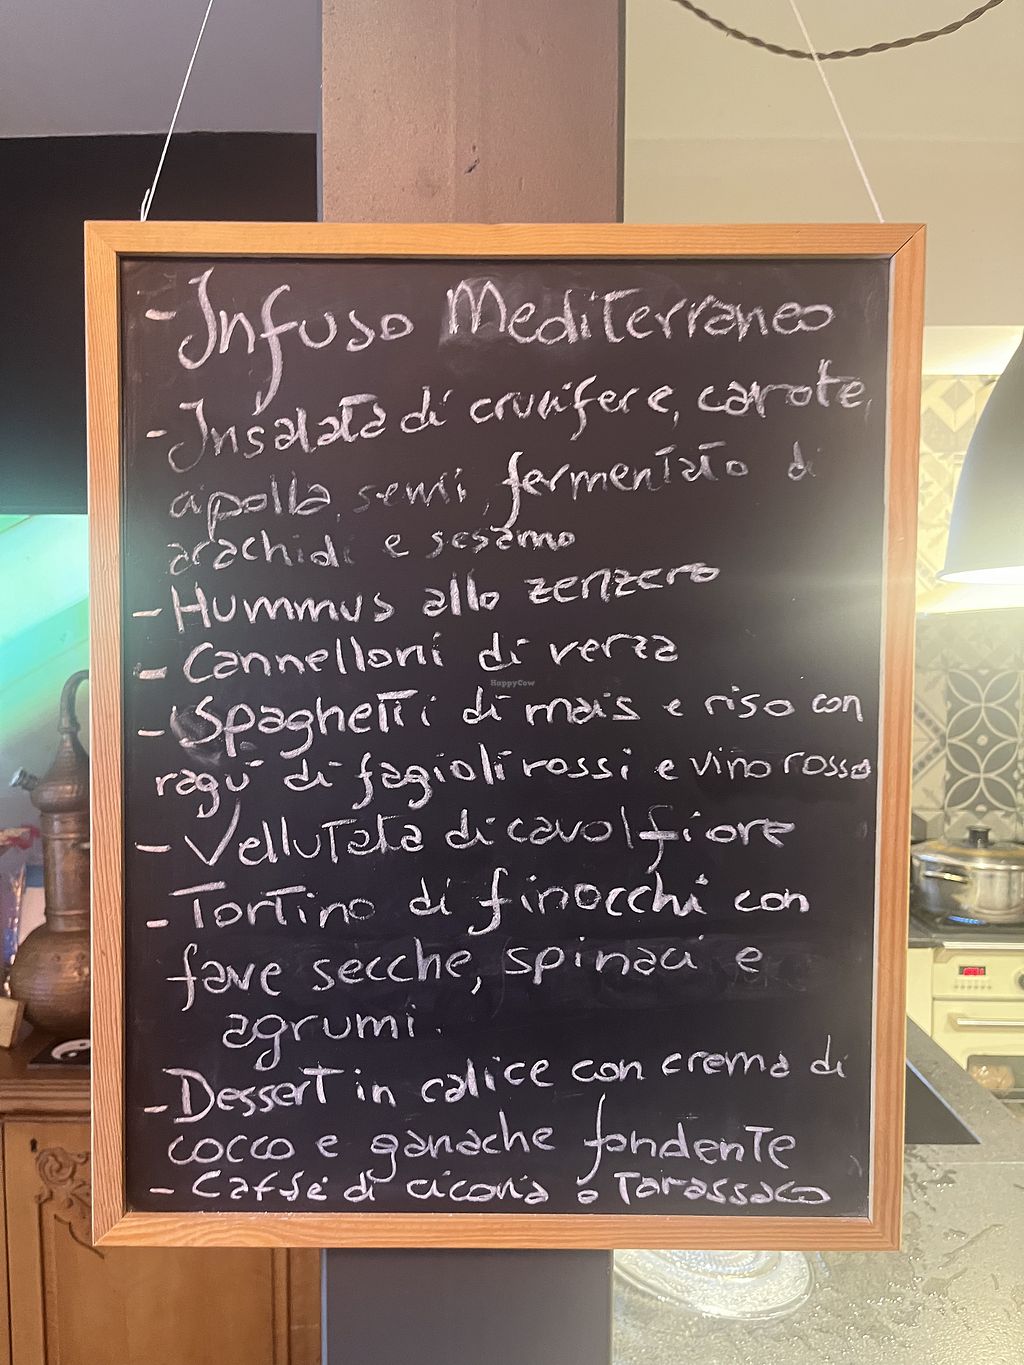 - Infuso Mediterraneo
- Insalata di crucifere, carote,
cipolla, semi, fermentato di
arachidi e sesamo
- Hummus allo zenzero
- Cannelloni di verza
HappyCow
- Spaghetti di mais e riso con
ragu' di fagioli rossi e vino rosso
- Vellutata di cavolfiore
- Tortino di finocchi con
fave secche, spinaci e
agrumi.
- Dessert in calice con crema di
cocco e ganache fondente
- Caffè di cicoria o Tarassaco